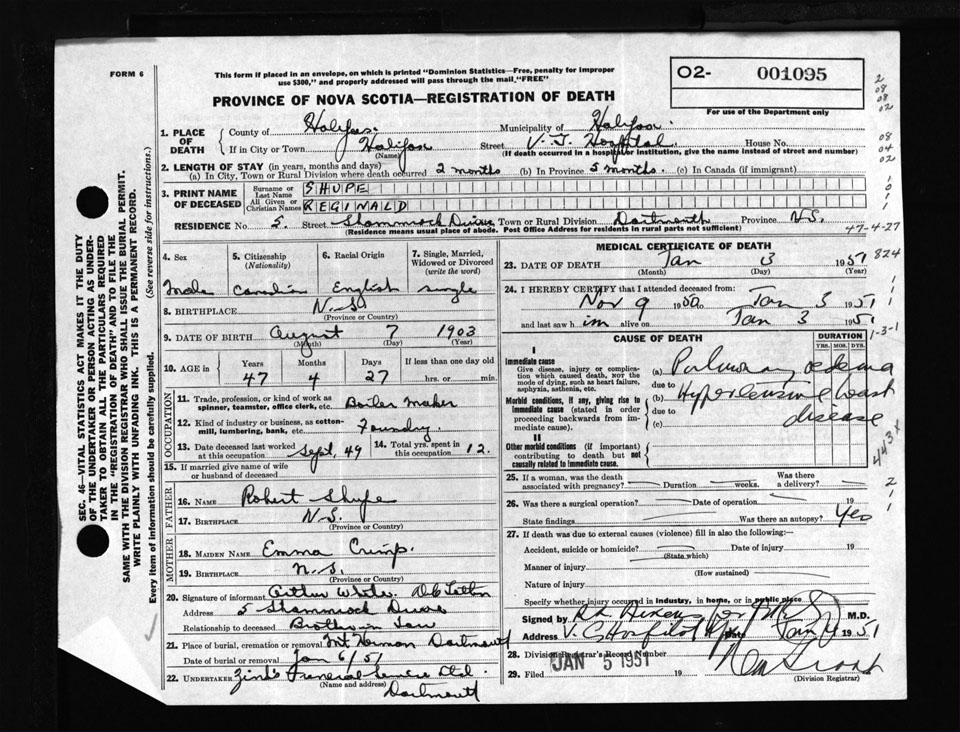 FORM 6
This form if placed in an envelope, on which is printed "Dominion Statistics—Free, penalty for improper
use $300," and properly addressed will pass through the mail "FREE"
O2- 001095
For use of the Department only
PROVINCE OF NOVA SCOTIA—REGISTRATION OF DEATH
1. PLACE OF DEATH
County of Halifax. Municipality of Halifax.
If in City or Town Halifax Street V. G. Hospital. House No.
(Name) (If death occurred in a hospital or institution, give the name instead of street and number)
2. LENGTH OF STAY (in years, months and days)
(a) In City, Town or Rural Division where death occurred 2 months (b) In Province 5 months. (c) In Canada (if immigrant)
3. PRINT NAME OF DECEASED
Surname or Last Name SHUPE
All Given or Christian Names REGINALD
RESIDENCE No. 5. Street Shammrock Drive Town or Rural Division Dartmouth Province N.S.
(Residence means usual place of abode. Post Office Address for Residents in rural parts not sufficient)
47-4-27
4. Sex 5. Citizenship (Nationality) 6. Racial Origin 7. Single, Married, Widowed or Divorced (write the word)
Male Canadian English single
8. BIRTHPLACE N.S.
(Province or Country)
9. DATE OF BIRTH August 7 1903
(Month) (Day) (Year)
10. AGE in Years Months Days If less than one day old
47 4 27 hrs. or min.
OCCUPATION
11. Trade, profession, or kind of work as spinner, teamster, office clerk, etc. Boiler maker
12. Kind of industry or business, as cotton-mill, lumbering, bank, etc. Foundry.
13. Date deceased last worked at this occupation Sept, 49 14. Total yrs. spent in this occupation 12.
15. If married give name of wife or husband of deceased
FATHER
16. NAME Robert Shupe
17. BIRTHPLACE N.S.
(Province or Country)
MOTHER
18. MAIDEN NAME Emma Crimp.
19. BIRTHPLACE N.S.
(Province or Country)
20. Signature of informant Arthur White.
Address 5 Shammrock Drive
Relationship to deceased Brother in Law
21. Place of burial, cremation or removal Mt Hermon Dartmouth
Date of burial or removal Jan 6/51
22. UNDERTAKER Zink's Funeral Service Ltd.
(Name and address) Dartmouth
MEDICAL CERTIFICATE OF DEATH
23. DATE OF DEATH Jan 3 1951
(Month) (Day) (Year)
824
24. I HEREBY CERTIFY that I attended deceased from:
Nov 9 1950 to Jan 3 1951
and last saw him alive on Jan 3 1951
CAUSE OF DEATH DURATION
YRS. MOS. DYS.
I
Immediate cause
Give disease, injury or complication which caused death, not the mode of dying, such as heart failure, asphyxia, asthenia, etc.
(a) Pulmonary oedema
due to
Morbid conditions, if any, giving rise to immediate cause (stated in order proceeding backwards from immediate cause).
(b) Hypertensive heart
due to
(c) disease
II
Other morbid conditions (if important) contributing to death but not causally related to immediate cause.
443X
25. If a woman, was the death associated with pregnancy? Duration weeks. Was there a delivery?
26. Was there a surgical operation? Date of operation 19
State findings Was there an autopsy? Yes
27. If death was due to external causes (violence) fill in also the following:—
Accident, suicide or homicide? Date of injury 19
(State which)
Manner of injury
(How sustained)
Nature of injury
Specify whether injury occurred in industry, in home, or in public place
Signed by M.D.
Address V. G. Hospital Date Jan 4 1951
28. Division Registrar's Record Number
JAN 5 1951
29. Filed 19
(Division Registrar)
SEC. 46—VITAL STATISTICS ACT MAKES IT THE DUTY
OF THE UNDERTAKER OR PERSON ACTING AS UNDER-
TAKER TO OBTAIN ALL THE PARTICULARS REQUIRED
IN THE "REGISTRATION OF DEATH" AND TO FILE THE
SAME WITH THE DIVISION REGISTRAR WHO SHALL ISSUE THE BURIAL PERMIT.
WRITE PLAINLY WITH UNFADING INK. THIS IS A PERMANENT RECORD.
Every item of information should be carefully supplied. (See reverse side for instructions.)